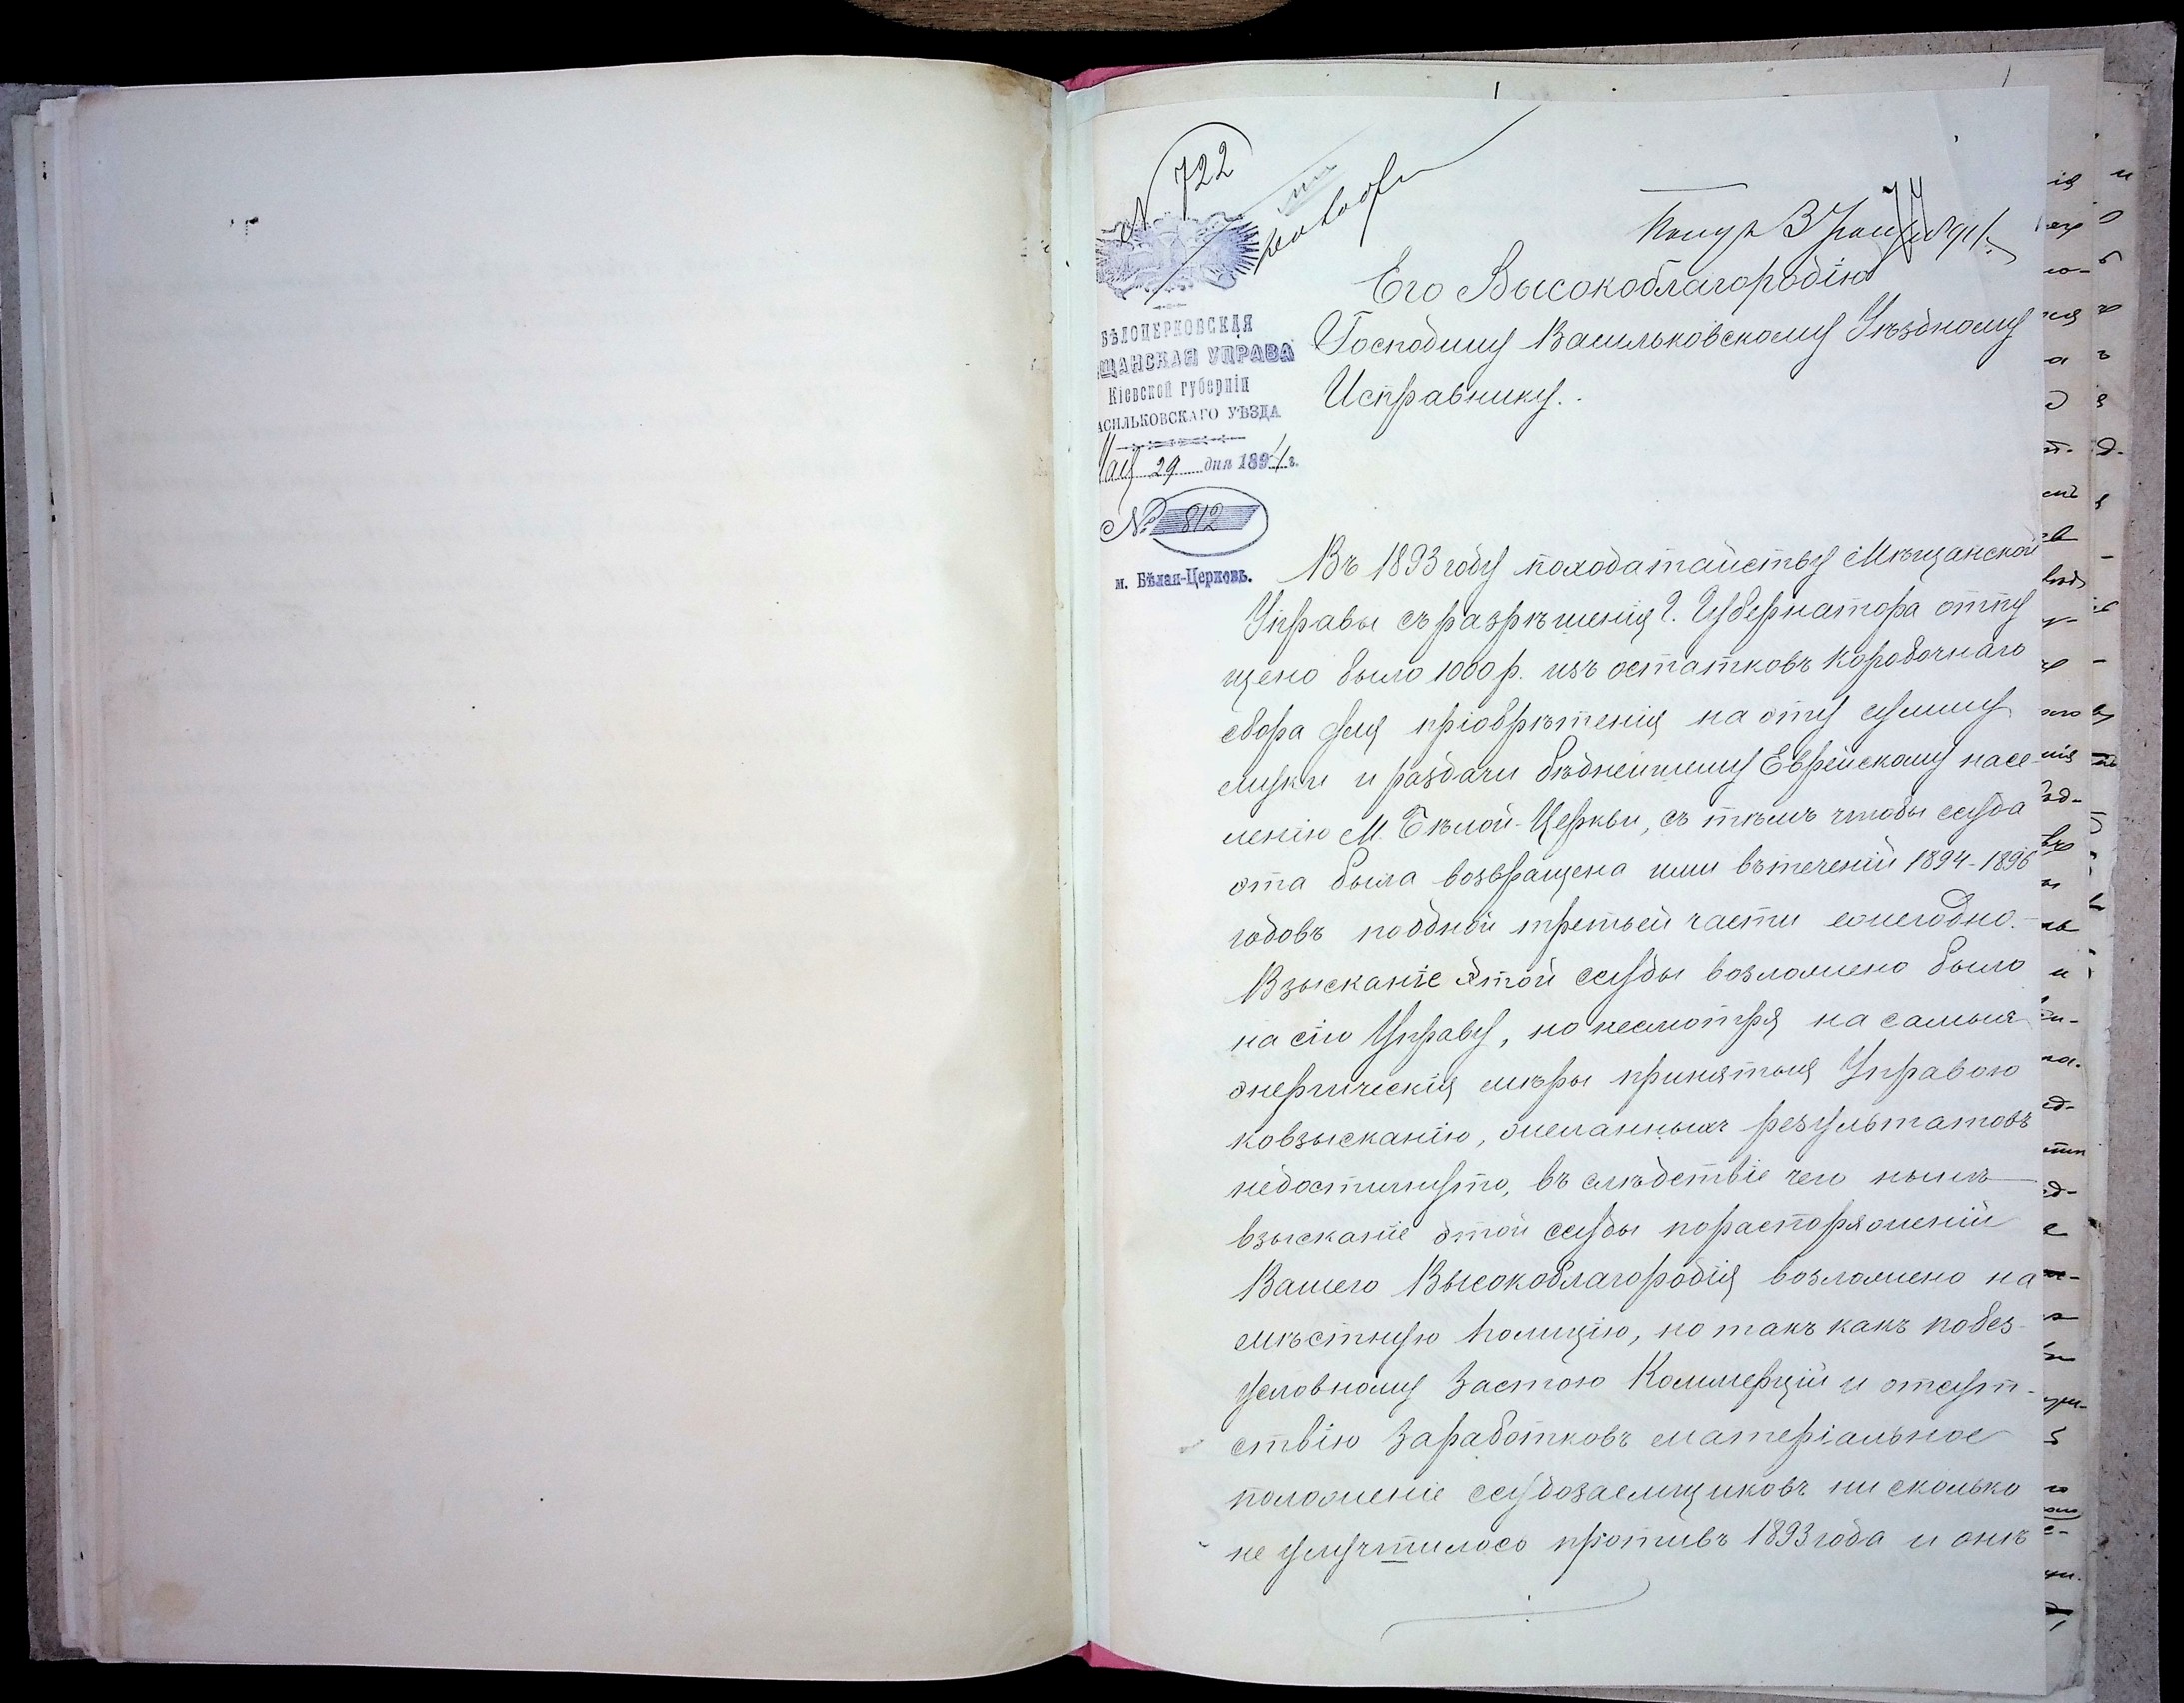 № 722
74
БѢЛОЦЕРКОВСКАЯ
ЩАНСКАЯ УПРАВА
Кіевской губерніи
АСИЛЬКОВСКАГО УѢЗДА
Мая 29 дня 1894 г.
№ 812
м. Бѣлая-Церковь.
Его Высокоблагородію
Господину Васильковскому Уѣздному
Исправнику.
Въ 1893 году по ходатайству Мѣщанской
Управы съ разрѣшенія Г. Губернатора отпу
щено было 1000 р. изъ остатковъ коробочнаго
сбора для пріобрѣтенія на эту сумму
муки и раздачи бѣднейшему Еврейскому насе-
ленію М. Бѣлой-Церкви, съ тѣмъ чтобы ссуда
эта была возвращена ими въ теченіи 1894-1896
годовъ по одной третьей части ежегодно.-
Взысканіе этой ссуды возложено было
на сію Управу, но несмотря на самыя
энергическія мѣры принятыя Управою
ко взысканію, желанныхъ результатовъ
недостигнуто, въ слѣдствіе чего нынѣ
взысканіе этой ссуды по распоряженій
Вашего Высокоблагородія возложено на
мѣстную полицію, но такъ какъ по без-
условному застою Коммерціи и отсут-
ствію заработковъ матеріальное
положеніе ссудозаемщиковъ ни сколько
не улучшилось противъ 1893 года и онѣ